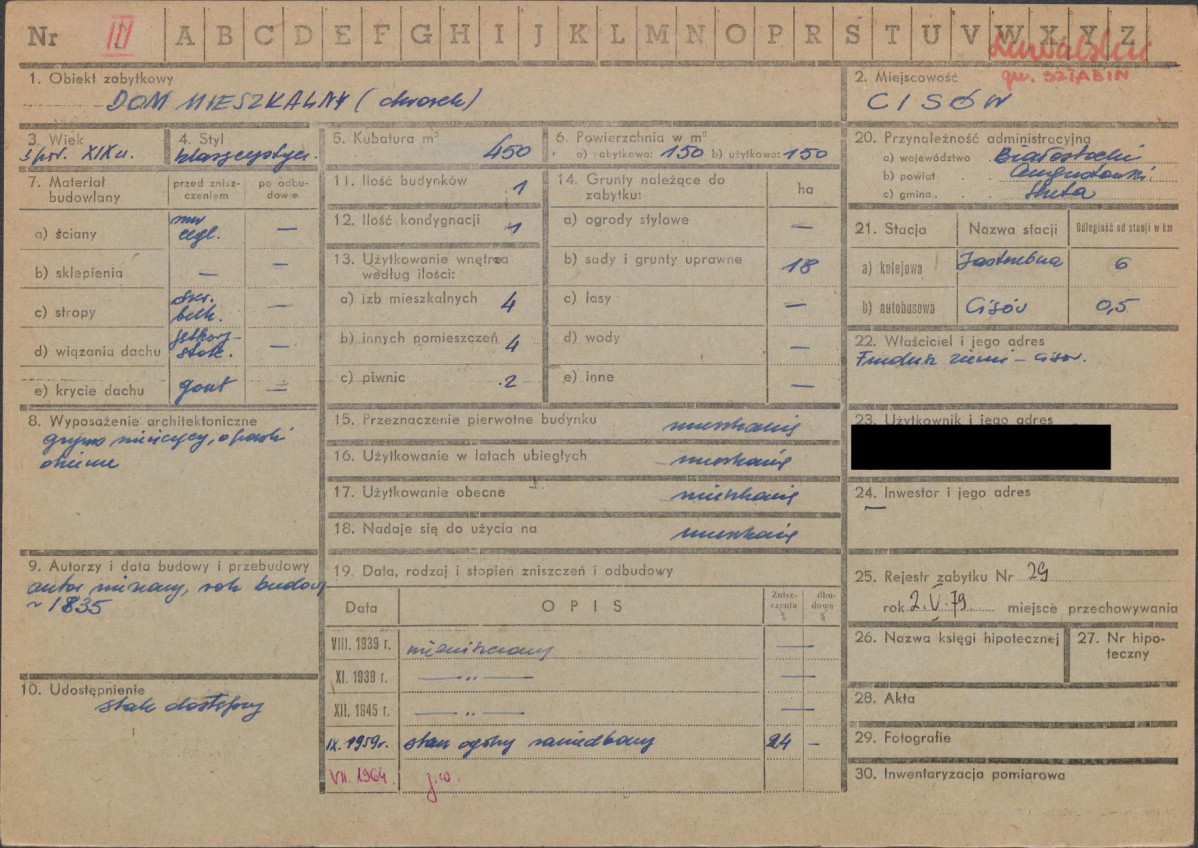 Nr III A B C D E F G H I J K L M N O P R S T U V W X Y Z
Suwalskie
gm. SZTABIN
1. Obiekt zabytkowy
DOM MIESZKALNY (dworek)
2. Miejscowość
CISÓW
3. Wiek
I poł. XIX w.
4. Styl
klasycystycz.
5. Kubatura m³
450
6. Powierzchnia w m²
a) zabytkowa: 150 b) użytkowa: 150
7. Materiał budowlany
przed znisz-
czeniem
po odbu-
dowie
a) ściany mur cegl. —
b) sklepienia — —
c) stropy drew. belk. —
d) wiązania dachu stolc. —
e) krycie dachu gont —
8. Wyposażenie architektoniczne
9. Autorzy i data budowy i przebudowy
autor nieznany, rok budowy
~ 1835
10. Udostępnienie
stale dostępny
11. Ilość budynków 1
12. Ilość kondygnacji 1
13. Użytkowanie wnętrza
według ilości:
a) izb mieszkalnych 4
b) innych pomieszczeń 4
c) piwnic 2
14. Grunty należące do
zabytku:
ha
a) ogrody stylowe —
b) sady i grunty uprawne 18
c) lasy —
d) wody —
e) inne —
15. Przeznaczenie pierwotne budynku mieszkanie
16. Użytkowanie w latach ubiegłych mieszkanie
17. Użytkowanie obecne mieszkanie
18. Nadaje się do użycia na mieszkanie
19. Data, rodzaj i stopień zniszczeń i odbudowy
Data OPIS Znisz-
czenia
%
dbu-
dowa
%
VIII. 1939 r. niezniszczony —
XI. 1939 r. — „ — —
XII. 1945 r. — „ — —
IX. 1959 r. stan ogólny zaniedbany 24 —
VII. 1964 j.w.
20. Przynależność administracyjna
a) województwo Białostockie
b) powiat Augustowski
c) gmina Huta
21. Stacja Nazwa stacji Odległość od stacji w km
a) kolejowa Jastrzębna 6
b) autobusowa Cisów 0,5
22. Właściciel i jego adres
Fundusz ziemi – Cisów.
23. Użytkownik i jego adres
24. Inwestor i jego adres
—
25. Rejestr zabytku Nr 29
rok 2. V. 79 miejsce przechowywania
26. Nazwa księgi hipotecznej
27. Nr hipo-
teczny
28. Akta
29. Fotografie
30. Inwentaryzacja pomiarowa